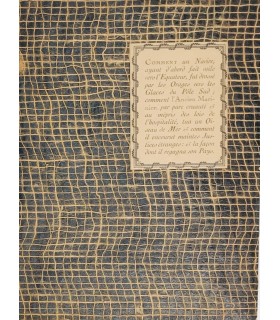 COMMENT un Navire,
ayant d'abord fait voile
vers l'Equateur, fut drossé
par les Orages vers les
Glaces du Pôle Sud;
comment l'Ancien Mari-
nier par pure cruauté et
au mépris des lois de
l'hospitalité, tua un Oi-
seau de Mer et comment
il encourut maints Ju-
                                                                                                                                                                                                                                                                                                                                                                                                                                                                                                                                                                                                                                                                                                                                                                                                                                                                                                                                                                                                                                                                                                                                                                                                                                                                                                                                                                                          étranges; et la façon
dont il regagna son Pays.